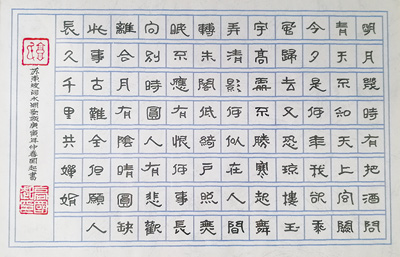 明月幾時有把酒問
青天不知天上宮闕
今夕是何年我欲乘
風歸去又恐瓊樓玉
宇高處不勝寒起舞
弄清影何似在人間
轉朱閣低綺戶照無
眠不應有恨何事長
向別時圓人有悲歡
離合月有陰晴圓缺
此事古難全但願人
長久千里共嬋娟
苏東坡詞水調歌頭庚寅年仲春書